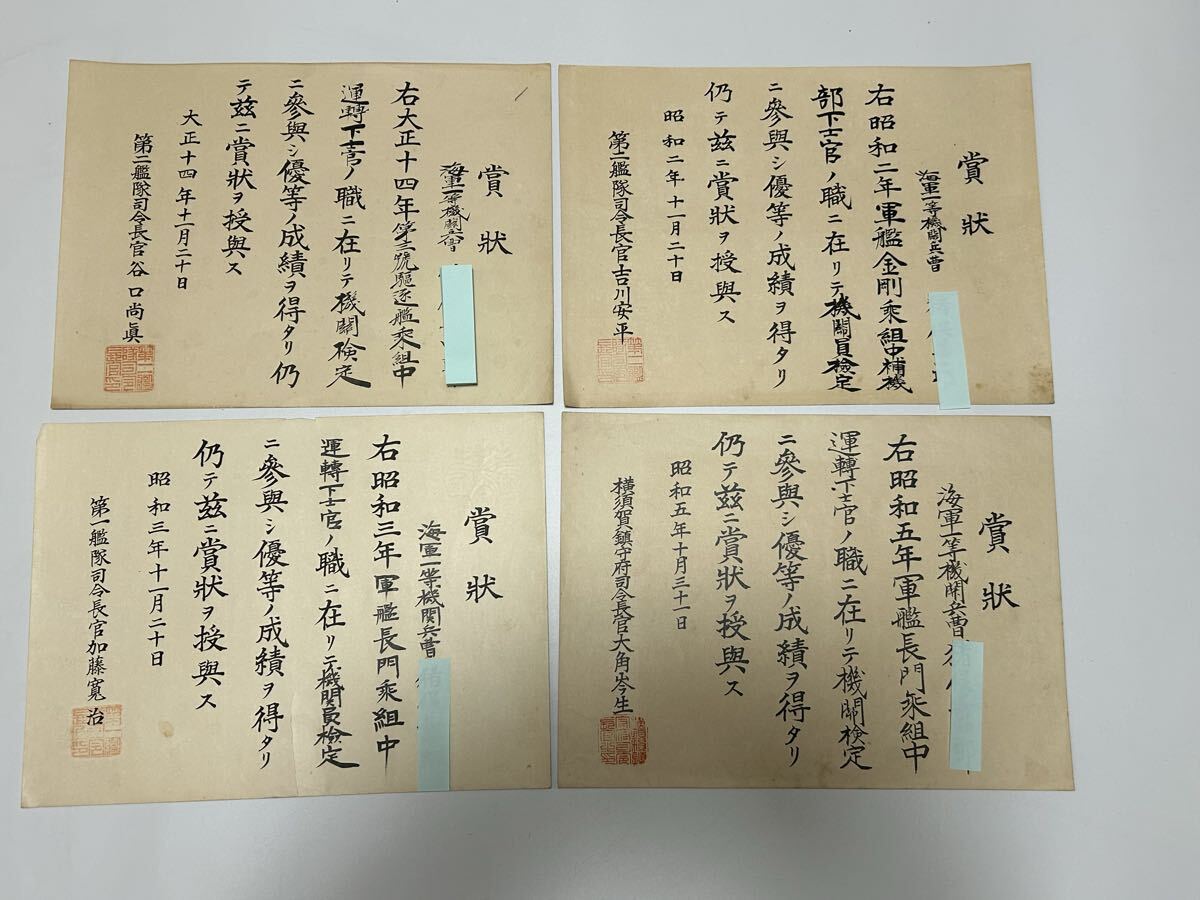 賞狀
海軍一等機關兵曹
右大正十四年第三號驅逐艦乘組中
運轉下士官ノ職ニ在リテ機關檢定
ニ參與シ優等ノ成績ヲ得タリ仍
テ茲ニ賞狀ヲ授與ス
大正十四年十一月二十日
第二艦隊司令長官谷口尚眞
賞狀
海軍一等機關兵曹
右昭和二年軍艦金剛乘組中補機
部下士官ノ職ニ在リテ機關員檢定
ニ參與シ優等ノ成績ヲ得タリ
仍テ茲ニ賞狀ヲ授與ス
昭和二年十一月二十日
第二艦隊司令長官吉川安平
賞狀
海軍一等機關兵曹
右昭和三年軍艦長門乘組中
運轉下士官ノ職ニ在リテ機關員檢定
ニ參與シ優等ノ成績ヲ得タリ
仍テ茲ニ賞狀ヲ授與ス
昭和三年十一月二十日
第一艦隊司令長官加藤寛治
賞狀
海軍一等機關兵曹
右昭和五年軍艦長門乘組中
運轉下士官ノ職ニ在リテ機關檢定
ニ參與シ優等ノ成績ヲ得タリ
仍テ茲ニ賞狀ヲ授與ス
昭和五年十月三十一日
橫須賀鎮守府司令長官大角岑生